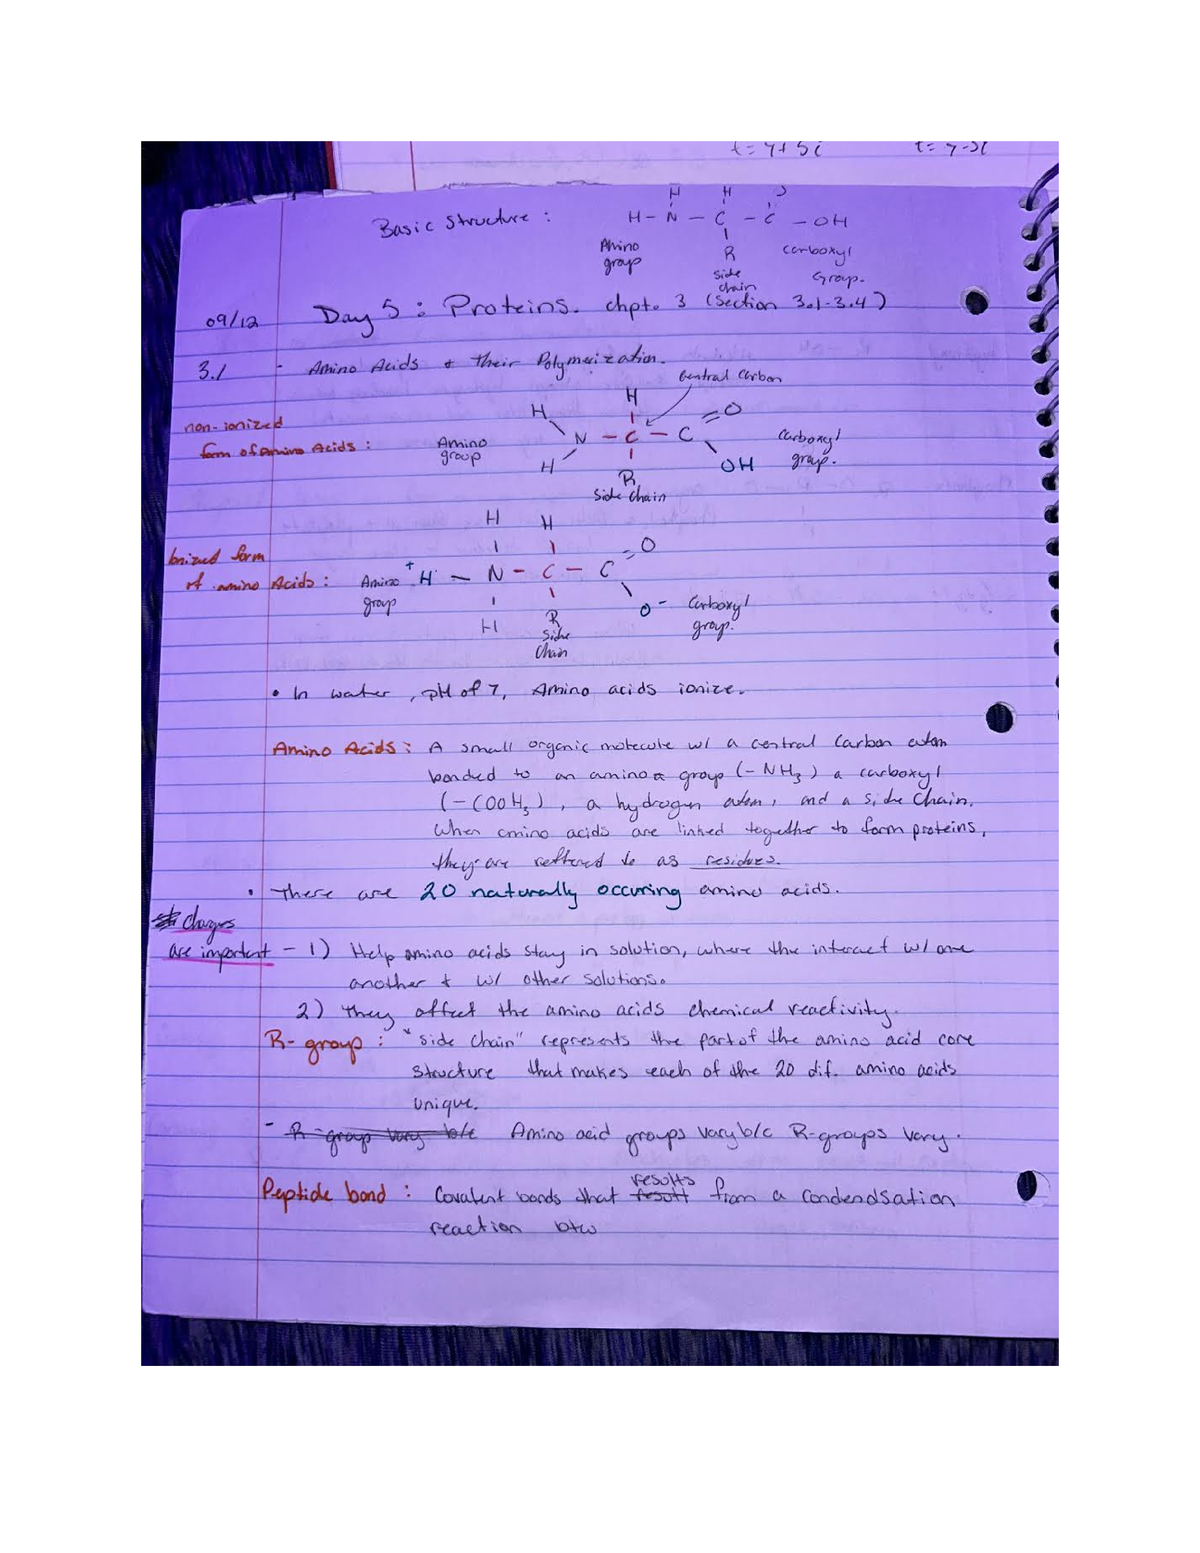 t = 7+5i t = 7-5i
Basic Structure :
H H O
H - N - C - C - OH
Amino group R side chain Carboxyl Group.
09/12 Day 5 : Proteins. chpt. 3 (Section 3.1-3.4)
3.1 - Amino Acids & Their Polymerization.
Central Carbon
non-ionized form of Amino Acids :
H H O
Amino group N - C - C Carboxyl group.
H R OH
Side Chain
H H O
Ionized form of amino Acids : Amino group +H - N - C - C
H R O- Carboxyl group.
Side Chain
• In water, pH of 7, Amino acids ionize.
Amino Acids : A small organic molecule w/ a central Carbon atom
bonded to an amino group (-NH3) a carboxyl
(-COOH3), a hydrogen atom, and a side Chain.
When amino acids are linked together to form proteins,
they are reffered to as residues.
• There are 20 naturally occuring amino acids.
* Charges
are important - 1) Help amino acids stay in solution, where the interact w/ one
another & w/ other solutions.
2) They affect the amino acids chemical reactivity.
R-group : "side chain" represents the part of the amino acid core
structure that makes each of the 20 dif. amino acids
unique.
- R-group vary b/c Amino acid groups vary b/c R-groups vary.
Peptide bond : Covalent bonds that result results from a condendsation
reaction btw